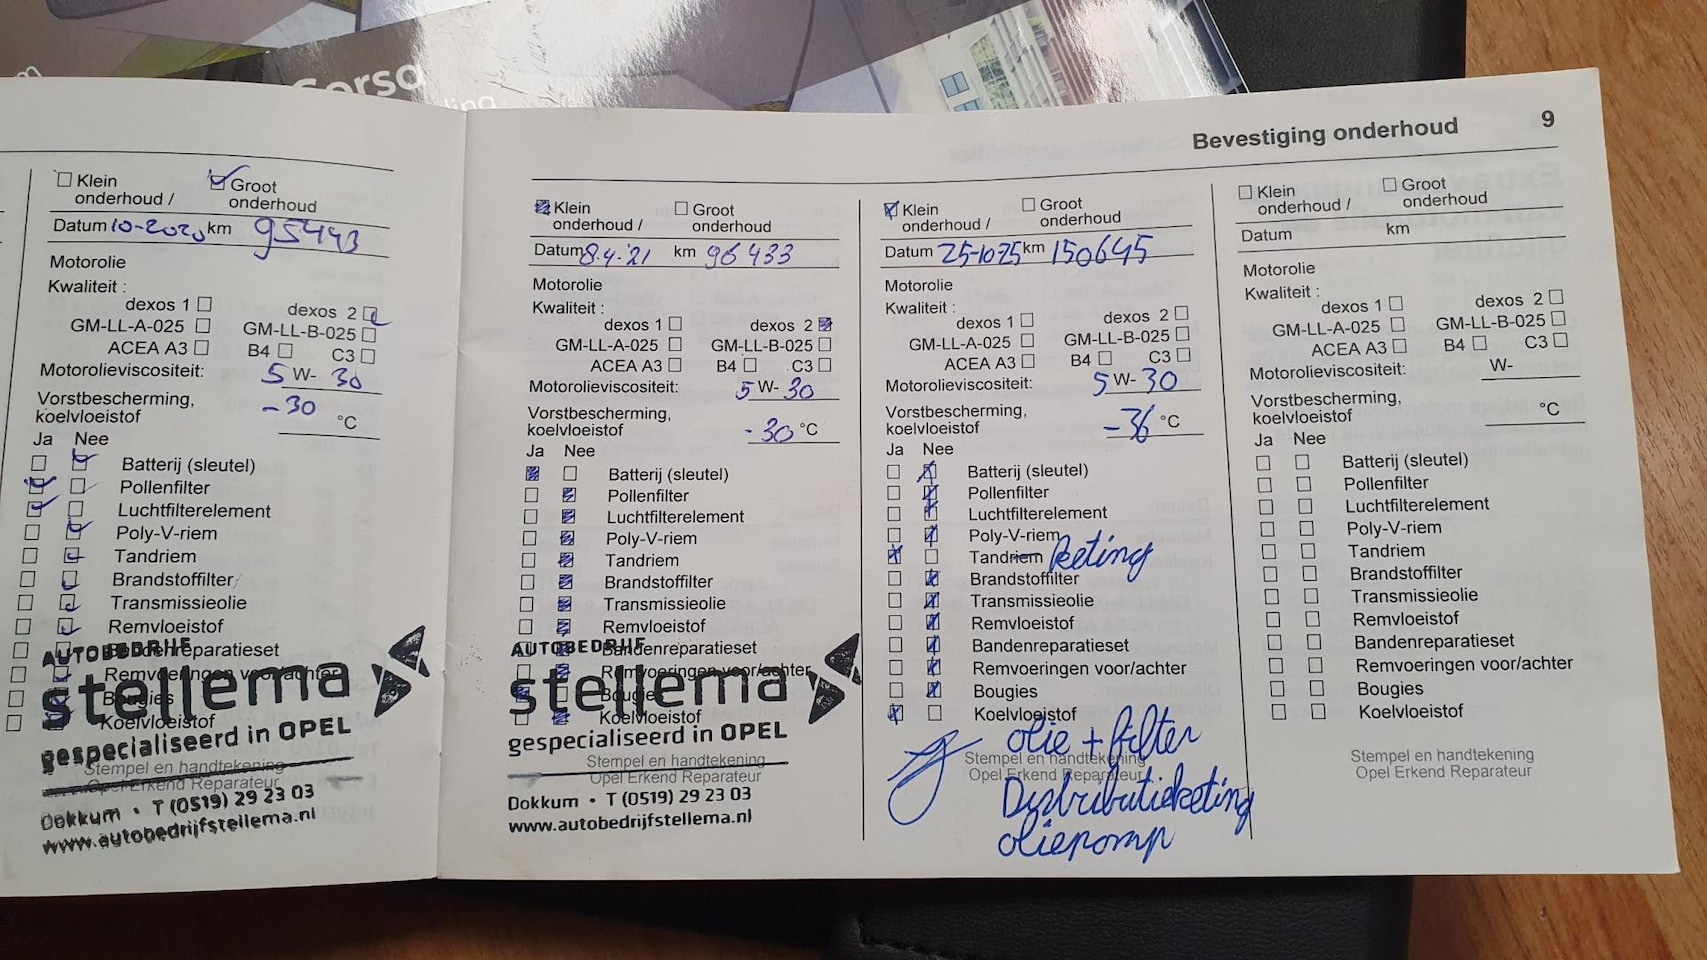 Corsa
Bevestiging onderhoud 9
Klein onderhoud / Groot onderhoud
Datum 10-2020 km 95443
Motorolie
Kwaliteit :
dexos 1 dexos 2
GM-LL-A-025 GM-LL-B-025
ACEA A3 B4 C3
Motorolieviscositeit: 5 W- 30
Vorstbescherming,
koelvloeistof -30 °C
Ja Nee
Batterij (sleutel)
Pollenfilter
Luchtfilterelement
Poly-V-riem
Tandriem
Brandstoffilter
Transmissieolie
Remvloeistof
Bandenreparatieset
Remvoeringen voor/achter
Bougies
Koelvloeistof
AUTOBEDRIJF
stellema
gespecialiseerd in OPEL
Stempel en handtekening
Opel Erkend Reparateur
Dokkum • T (0519) 29 23 03
www.autobedrijfstellema.nl
Klein onderhoud / Groot onderhoud
Datum 8.4.'21 km 96433
Motorolie
Kwaliteit :
dexos 1 dexos 2
GM-LL-A-025 GM-LL-B-025
ACEA A3 B4 C3
Motorolieviscositeit: 5 W- 30
Vorstbescherming,
koelvloeistof -30 °C
Ja Nee
Batterij (sleutel)
Pollenfilter
Luchtfilterelement
Poly-V-riem
Tandriem
Brandstoffilter
Transmissieolie
Remvloeistof
Bandenreparatieset
Remvoeringen voor/achter
Bougies
Koelvloeistof
AUTOBEDRIJF
stellema
gespecialiseerd in OPEL
Stempel en handtekening
Opel Erkend Reparateur
Dokkum • T (0519) 29 23 03
www.autobedrijfstellema.nl
Klein onderhoud / Groot onderhoud
Datum 25-10-25 km 150645
Motorolie
Kwaliteit :
dexos 1 dexos 2
GM-LL-A-025 GM-LL-B-025
ACEA A3 B4 C3
Motorolieviscositeit: 5 W- 30
Vorstbescherming,
koelvloeistof -36 °C
Ja Nee
Batterij (sleutel)
Pollenfilter
Luchtfilterelement
Poly-V-riem
Tandriem keting
Brandstoffilter
Transmissieolie
Remvloeistof
Bandenreparatieset
Remvoeringen voor/achter
Bougies
Koelvloeistof
olie + filter
Stempel en handtekening
Opel Erkend Reparateur
Distributieketing
oliepomp
Klein onderhoud / Groot onderhoud
Datum km
Motorolie
Kwaliteit :
dexos 1 dexos 2
GM-LL-A-025 GM-LL-B-025
ACEA A3 B4 C3
Motorolieviscositeit: W-
Vorstbescherming,
koelvloeistof °C
Ja Nee
Batterij (sleutel)
Pollenfilter
Luchtfilterelement
Poly-V-riem
Tandriem
Brandstoffilter
Transmissieolie
Remvloeistof
Bandenreparatieset
Remvoeringen voor/achter
Bougies
Koelvloeistof
Stempel en handtekening
Opel Erkend Reparateur